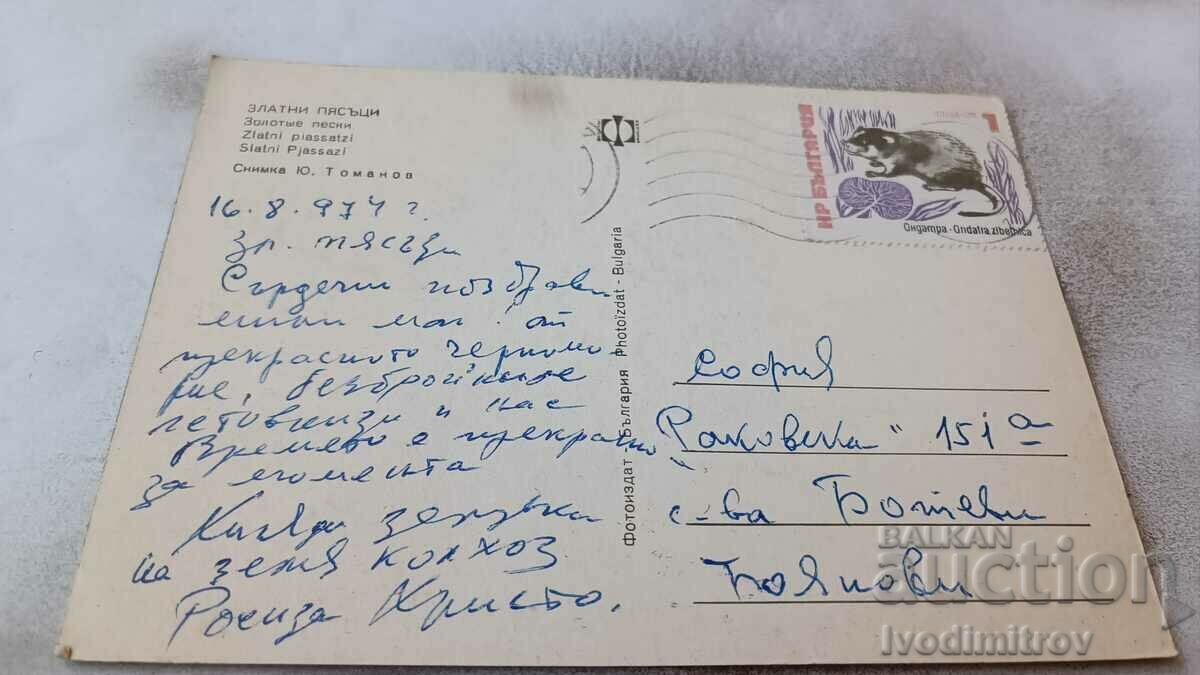 ЗЛАТНИ ПЯСЪЦИ
Золотые пески
Zlatni piassatzi
Slatni Pjassazi
Снимка Ю. Томанов
16.8.974 г.
Зл. пясъци
Сърдечни поздрави
от
прекрасното черномо-
рие, безбройните
летовници и нас
Времето е прекрасно
за момента
на зеле
Росица Христо.
фотоиздат - България Photoizdat - Bulgaria
НР БЪЛГАРИЯ
1
Ондатра - Ondatra zibethica
София
"Раковски" 151 а
с-ва Ботеви
Бояновs
BALKAN
auction
Ivodimitrov